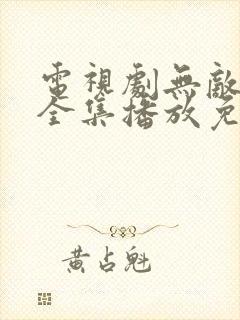 電視劇無敵
全集播放免
黃占魁